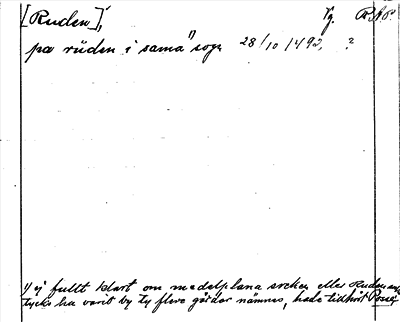 [Ruden], Vg. R.A.P.
pa rüden i sama 1) sogn 28/10 1492, ?
1) ej fullt klart om medelplana socken eller Ruden
tycks ha varit by ty flera gårdar nämnes, hade tidhört Posse